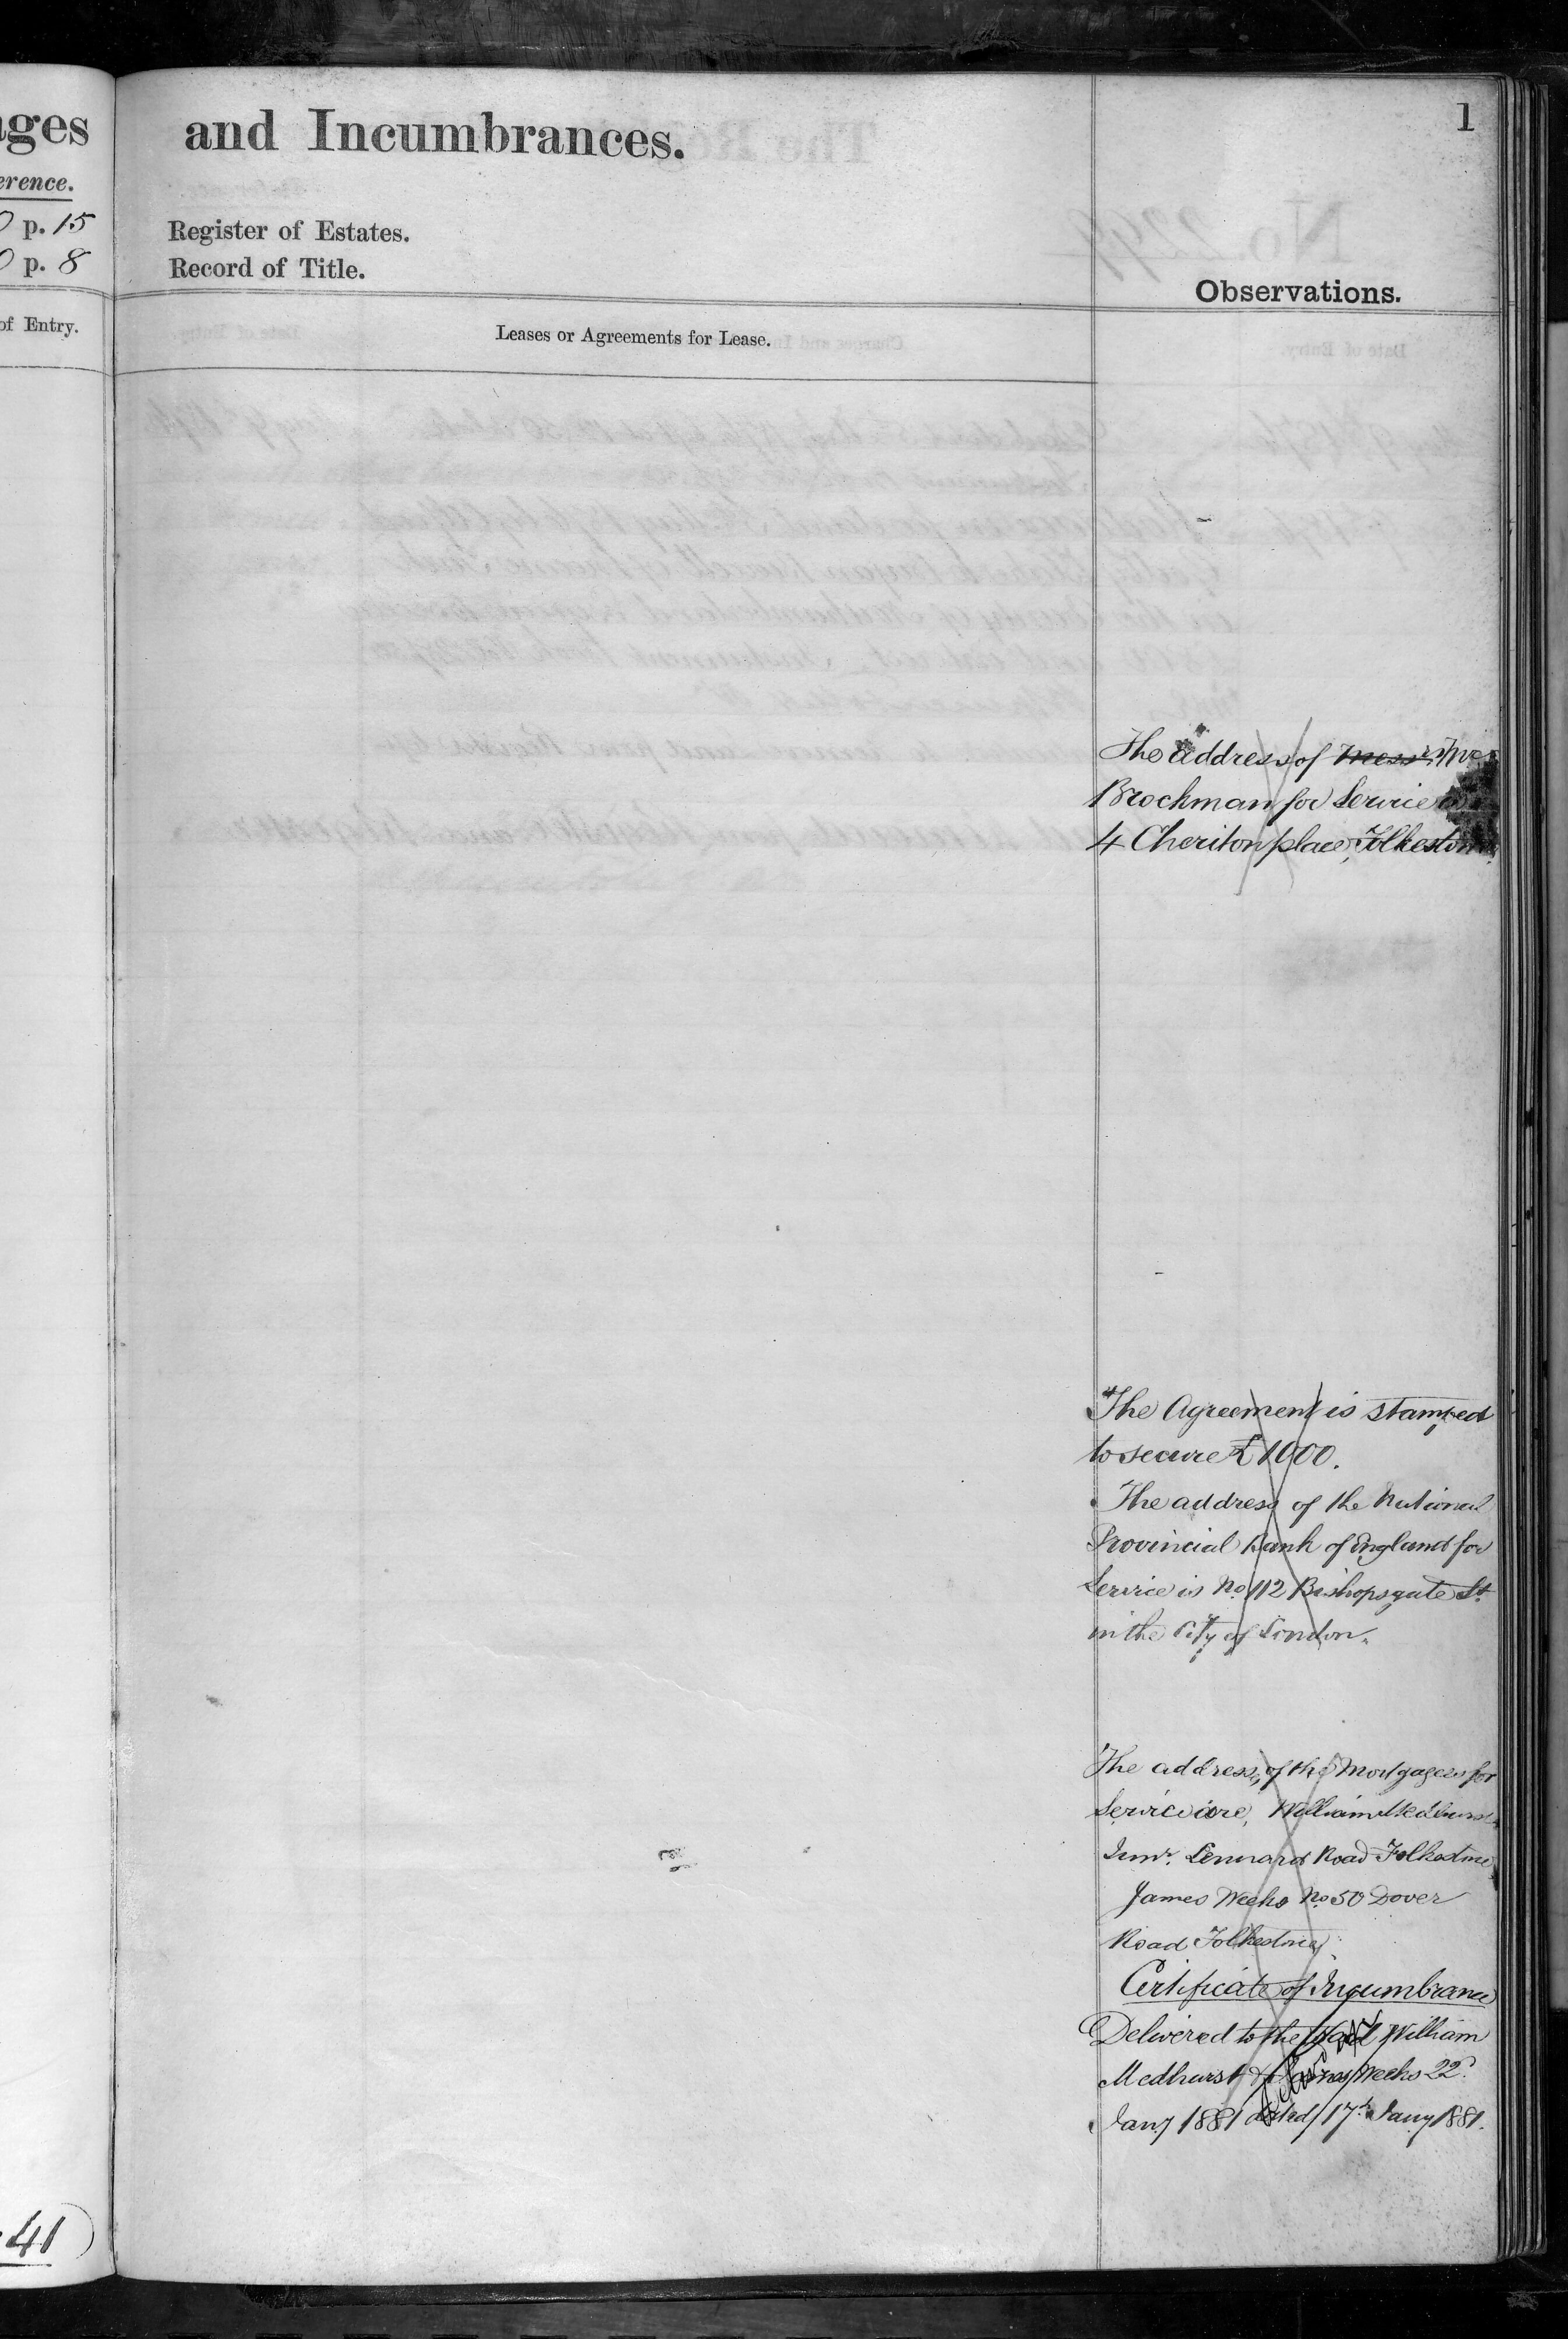 ages
erence.
p. 15
p. 8
of Entry.
41
and Incumbrances.
1
Register of Estates.
Record of Title.
Observations.
Leases or Agreements for Lease.
The address of Messrs
Brockman for Service
4 Cheriton place, Folkestone
The Agreement is stamped
to secure £1000.
The address of the National
Provincial Bank of England for
Service is No. 112 Bishopsgate St.
in the City of London.
The address of the Mortgagees for
Service are, William Medhurst
Junr. Lennard Road Folkestone
James Weeks No. 50 Dover
Road Folkestone
Certificate of Incumbrance
Delivered to the said William
Medhurst & James Weeks 22.
Jany 1881 dated 17th Jany 1881.